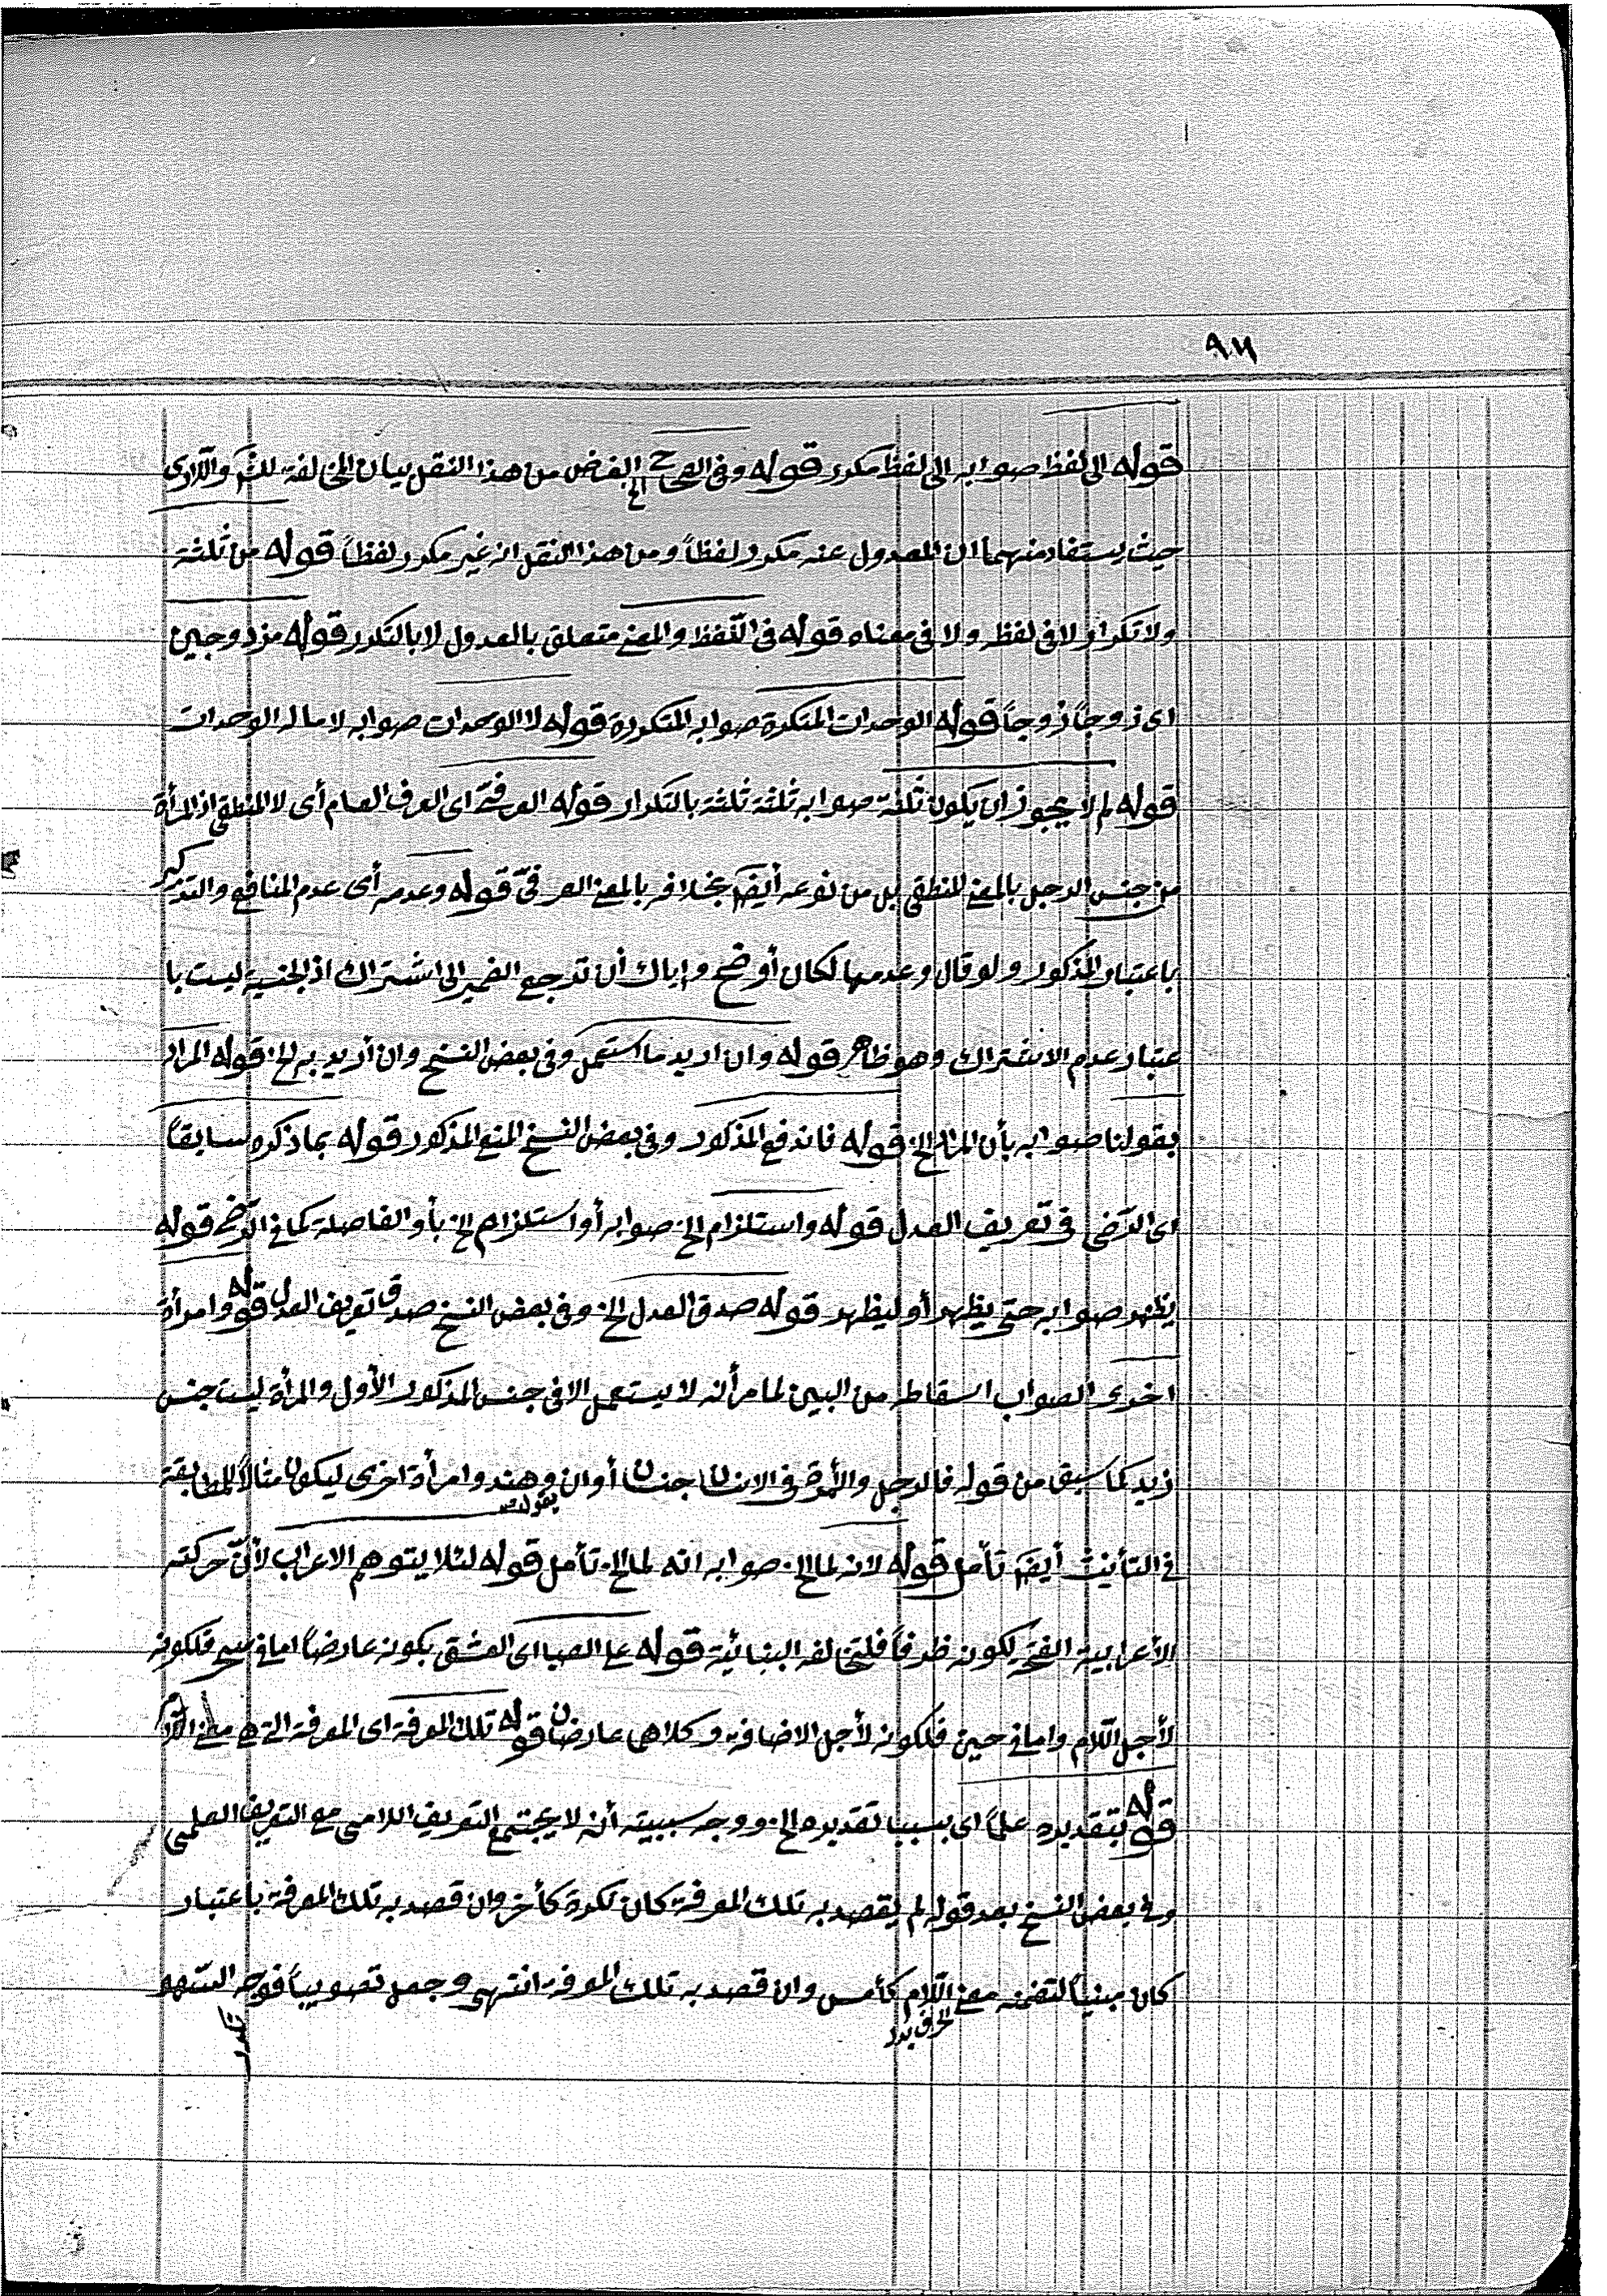 ٩٧
قوله الى لفظ صوابه الى لفظ مكرر قوله وفى الصحاح الخ الغرض من هذا النقل بيان المخالفة للشر واللارى
حيث يستفاد منهما ان المعدول عنه مكرر لفظاً ومن هذا النقل انه غير مكرر لفظاً قوله من ثلثة
ولا تكرار لا فى لفظه ولا فى معناه قوله فى اللّفظ والمعنى متعلق بالعدول لا بالتكرر قوله مزدوجين
اى زوجاً زوجاً قوله الوحدات المتكرة صوابه المتكررة قوله لا الوحدات صوابه لا ماله الوحدات
قوله لم لا يجوز ان يكون ثلثة صوابه ثلثة ثلثة بالتكرار قوله العرفىّ اى العرف العام أى لا المنطقى اذ المرأة
من جنس الرجل بالمعنى المنطقى بل من نوعه أيضاً بخلافه بالمعنى العرفىّ قوله وعدمه أى عدم المنافع والتذكير
باعتبار المذكور ولو قال وعدمها لكان أوضح واياك أن ترجع الضمير الى اشتراك اذ الجنسية ليست با
عتبار عدم الاشتراك وهو ظاهر قوله وان اريد ما استعمل وفى بعض النسخ وان أريد به الخ قوله المراد
بقولنا صوابه بأن المراد الخ قوله فاندفع المذكور وفى بعض النسخ المنع المذكور قوله بما ذكره سابقاً
اى الرّضى فى تعريف العدل قوله واستلزام الخ صوابه أو استلزام الخ بأو الفاصلة كما فى الرّضى قوله
يظهر صوابه حتى يظهر أو ليظهر قوله صدق العدل الخ وفى بعض النسخ صدق تعريف العدل قوله وامرأة
اخرى الصواب اسقاطه من البين لما مر أنه لا يستعمل الا فى جنس المذكور الأول والمرأة ليست جنس
زيد كما سبق من قوله فالرجل والمرأة فى الانسان جنسان أو ان يقول وهند وامرأة اخرى ليكون مثالاً للمطابقة
فى التأنيث أيضاً تأمل قوله لانه لما الخ صوابه انه لما الخ تأمل قوله لئلا يتوهم الاعراب لأنّ حركته
الأعرابية الفتحة لكونه ظرفاً فلتخالفه البنائية قوله على الصبا اى العشق بكونه عارضاً اما فى سحر فلكونه
لأجل اللّام واما فى حين فلكونه لأجل الاضافة وكلاهما عارضان قوله تلك المعرفة اى المعرفة التى هى معنى
قوله بتقديره علماً اى بسبب تقديره الخ ووجه سببيته أنه لا يجتمع التعريف اللامى مع التعريف العلمى
وفى بعض النسخ بعد قوله لم يقصد به تلك المعرفة كان نكرة كأخر وان قصد به تلك المعرفة باعتبار
كان مبنياً لتضمنه معنى اللّام كأمس وان قصد به تلك المعرفة انتهى وجعل تصويباً فوجه السهو